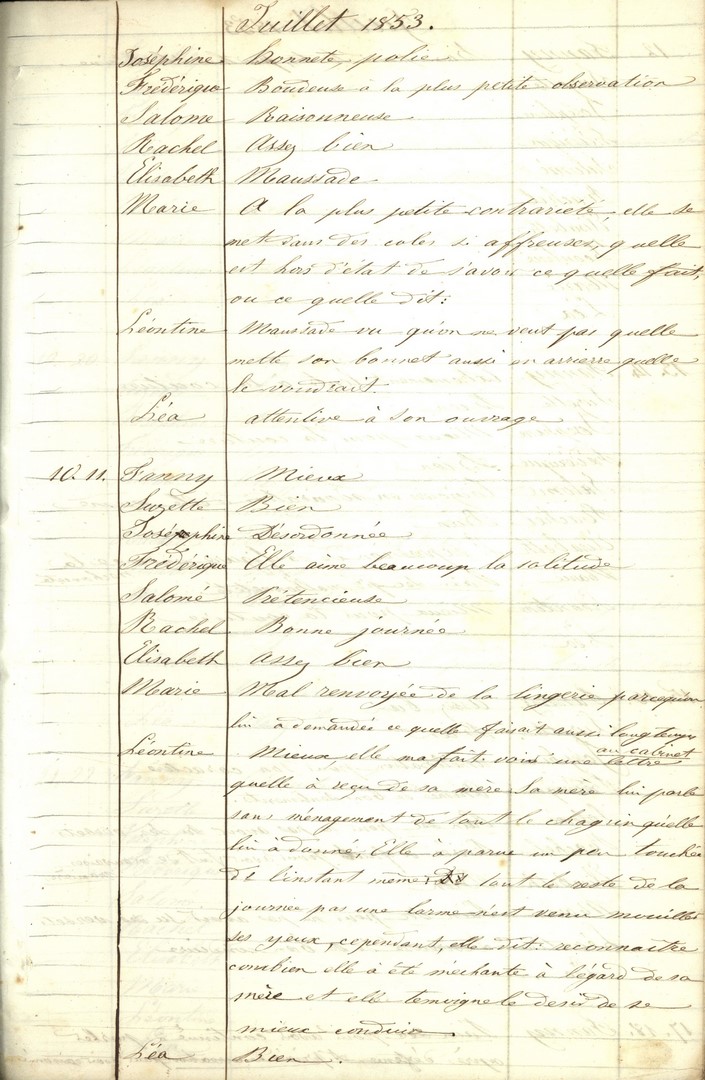 Juillet 1853.
Joséphine honnete, polie
Frédérique Boudeuse à la plus petite observation
Salome Raisonneuse
Rachel Assez bien
Elisabeth Maussade
Marie A la plus petite contrariété, elle se
met dans des coleres si affreuses, qu'elle
est hors d'état de savoir ce quelle fait,
ou ce quelle dit:
Léontine Maussade vu qu'on ne veut pas quelle
mette son bonnet aussi en arrierre quelle
le voudrait.
Léa attentive à son ouvrage
10. 11. Fanny Mieux
Suzette Bien
Joséphine Désordonnée
Frédérique Elle aime beaucoup la solitude
Salomé Prétencieuse
Rachel Bonne journée
Elisabeth Assez bien
Marie Mal renvoyée de la lingerie parcequ'on
lui à demandée ce quelle faisait aussi longtemps
au cabinet
Léontine Mieux, elle ma fait voir une lettre
quelle à reçu de sa mère. Sa mère lui parle
sans ménagement de tout le chagrin qu'elle
lui à donné, Elle à parue un peu touchée
dè l'instant même; tout le reste de la
journée pas une larme n'est venu mouiller
ses yeux, cependant, elle dit: reconnaitre
combien elle à été méchante à l'égard de sa
mère et elle temoigne le desir de se
mieux conduire.
Léa Bien.